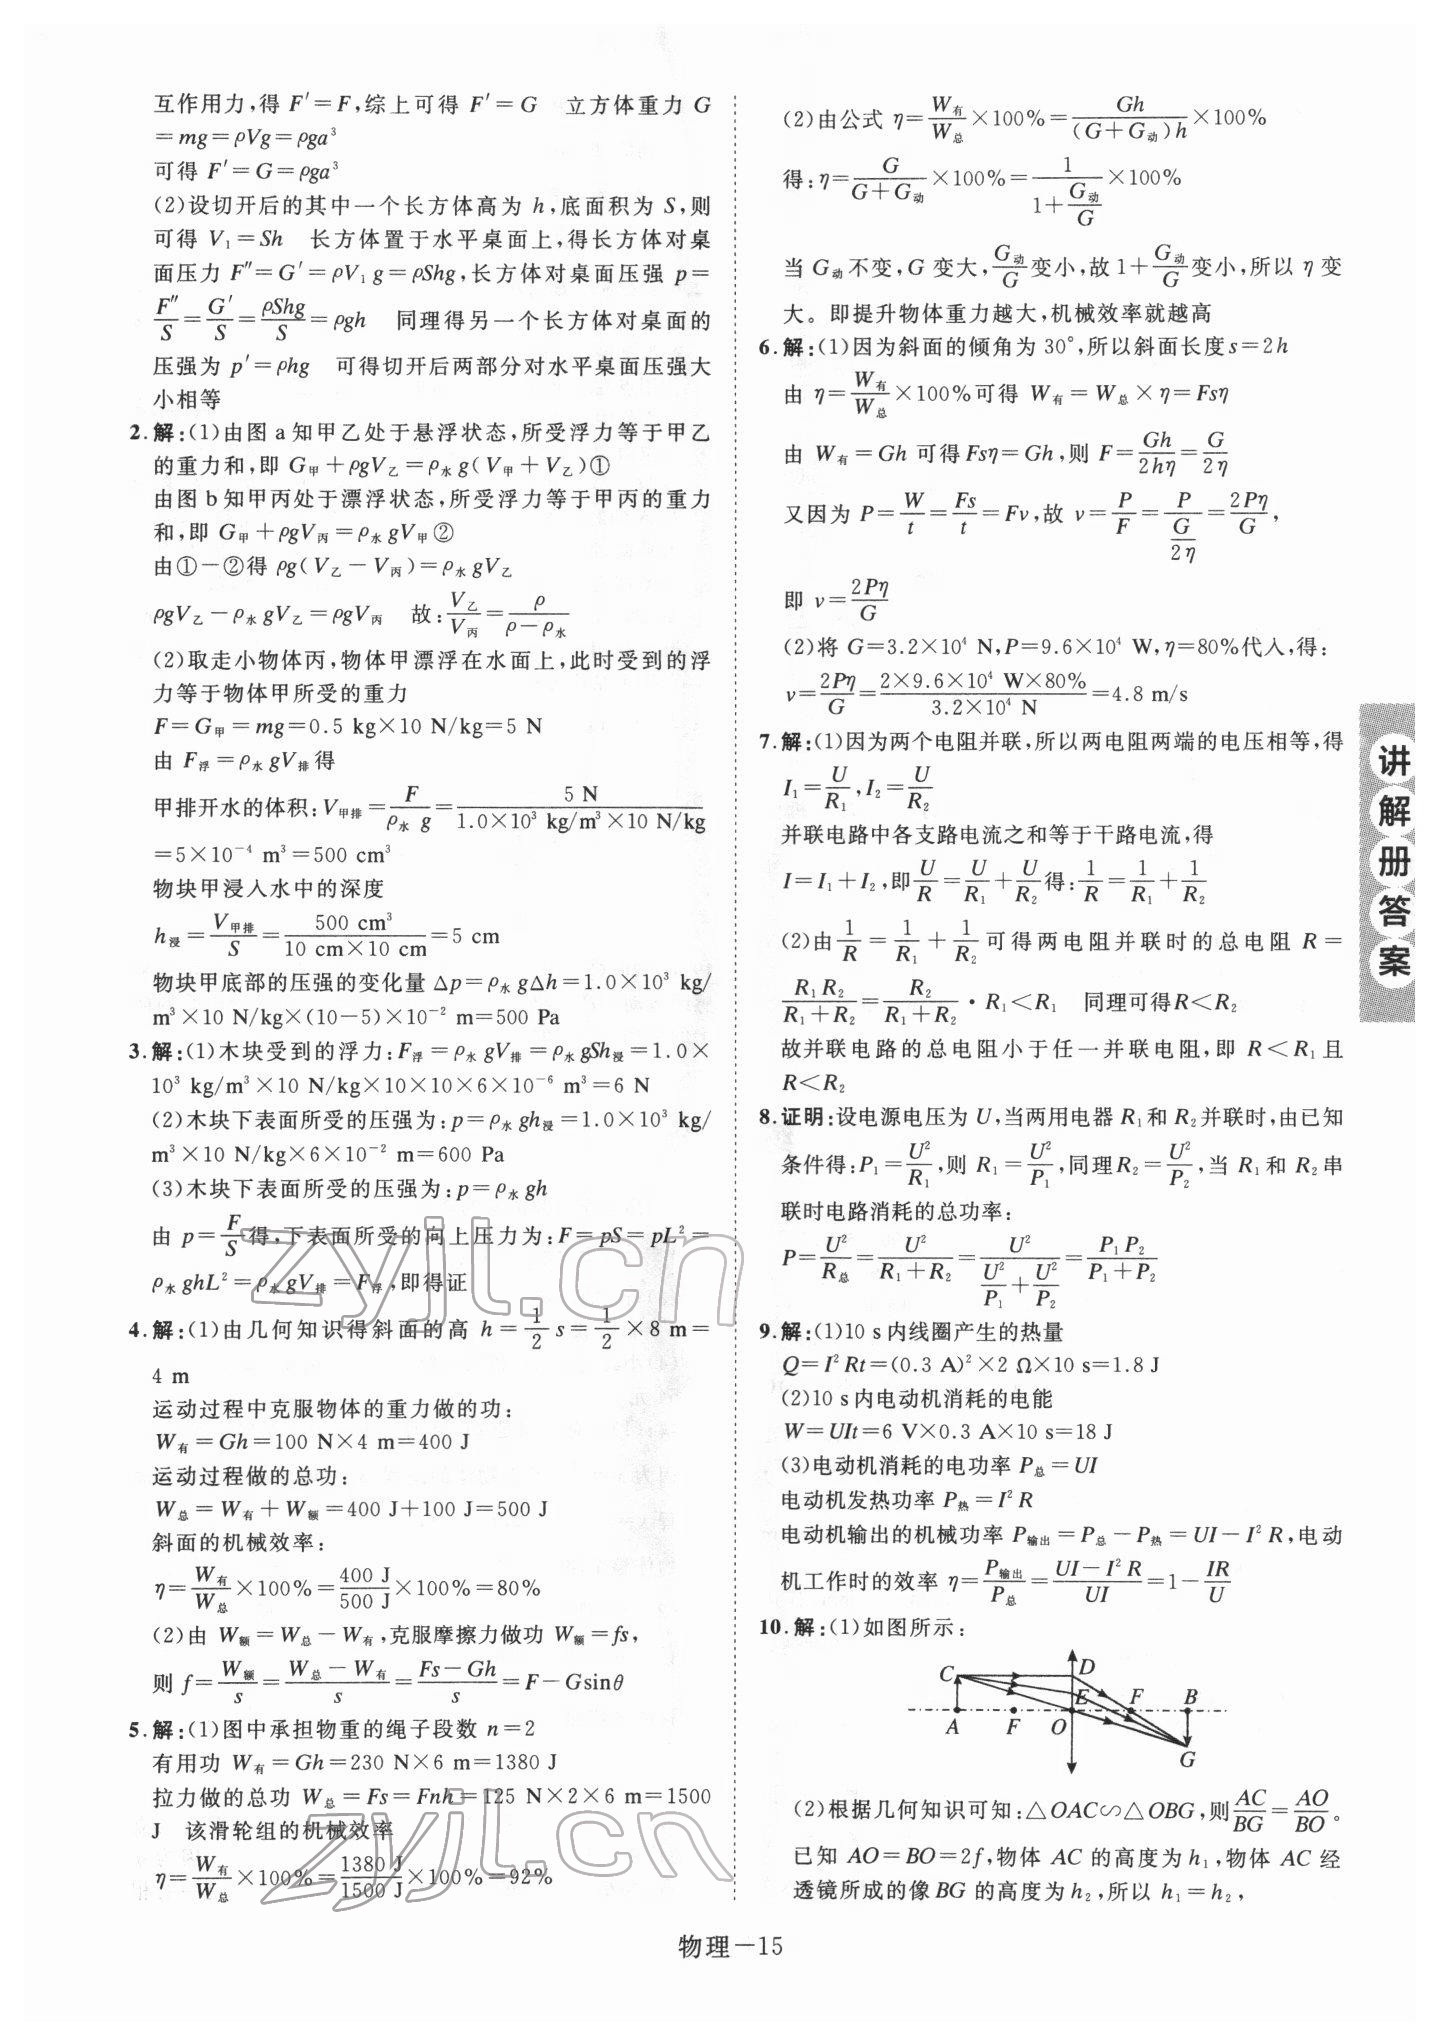 互作用力,得 F′=F,综上可得 F′=G　立方体重力 G
=mg=ρVg=ρga³
可得 F′=G=ρga³
(2)设切开后的其中一个长方体高为 h,底面积为 S,则
可得 V₁=Sh　长方体置于水平桌面上,得长方体对桌
面压力 F″=G′=ρV₁g=ρShg,长方体对桌面压强 p=
F″/S=G′/S=ρShg/S=ρgh　同理得另一个长方体对桌面的
压强为 p′=ρhg　可得切开后两部分对水平桌面压强大
小相等
2.解:(1)由图 a 知甲乙处于悬浮状态,所受浮力等于甲乙
的重力和,即 G甲+ρgV乙=ρ水g(V甲+V乙)①
由图 b 知甲丙处于漂浮状态,所受浮力等于甲丙的重力
和,即 G甲+ρgV丙=ρ水gV甲②
由①-②得 ρg(V乙-V丙)=ρ水gV乙
ρgV乙-ρ水gV乙=ρgV丙　故:V乙/V丙=ρ/(ρ-ρ水)
(2)取走小物体丙,物体甲漂浮在水面上,此时受到的浮
力等于物体甲所受的重力
F=G甲=mg=0.5 kg×10 N/kg=5 N
由 F浮=ρ水gV排得
甲排开水的体积:V甲排=F/(ρ水g)=5 N/(1.0×10³ kg/m³×10 N/kg)
=5×10⁻⁴ m³=500 cm³
物块甲浸入水中的深度
h浸=V甲排/S=500 cm³/(10 cm×10 cm)=5 cm
物块甲底部的压强的变化量 Δp=ρ水gΔh=1.0×10³ kg/
m³×10 N/kg×(10-5)×10⁻² m=500 Pa
3.解:(1)木块受到的浮力:F浮=ρ水gV排=ρ水gSh浸=1.0×
10³ kg/m³×10 N/kg×10×10×6×10⁻⁶ m³=6 N
(2)木块下表面所受的压强为:p=ρ水gh浸=1.0×10³ kg/
m³×10 N/kg×6×10⁻² m=600 Pa
(3)木块下表面所受的压强为:p=ρ水gh
由 p=F/S得,下表面所受的向上压力为:F=pS=pL²=
ρ水ghL²=ρ水gV排=F浮,即得证
4.解:(1)由几何知识得斜面的高 h=1/2 s=1/2×8 m=
4 m
运动过程中克服物体的重力做的功:
W有=Gh=100 N×4 m=400 J
运动过程做的总功:
W总=W有+W额=400 J+100 J=500 J
斜面的机械效率:
η=W有/W总×100%=400 J/500 J×100%=80%
(2)由 W额=W总-W有,克服摩擦力做功 W额=fs,
则 f=W额/s=(W总-W有)/s=(Fs-Gh)/s=F-Gsinθ
5.解:(1)图中承担物重的绳子段数 n=2
有用功 W有=Gh=230 N×6 m=1380 J
拉力做的总功 W总=Fs=Fnh=125 N×2×6 m=1500
J　该滑轮组的机械效率
η=W有/W总×100%=1380 J/1500 J×100%=92%
(2)由公式 η=W有/W总×100%=Gh/((G+G动)h)×100%
得:η=G/(G+G动)×100%=1/(1+G动/G)×100%
当 G动不变,G 变大,G动/G变小,故 1+G动/G变小,所以 η 变
大。即提升物体重力越大,机械效率就越高
6.解:(1)因为斜面的倾角为 30°,所以斜面长度 s=2h
由 η=W有/W总×100%可得 W有=W总×η=Fsη
由 W有=Gh 可得 Fsη=Gh,则 F=Gh/2hη=G/2η
又因为 P=W/t=Fs/t=Fv,故 v=P/F=P/(G/2η)=2Pη/G,
即 v=2Pη/G
(2)将 G=3.2×10⁴ N,P=9.6×10⁴ W,η=80%代入,得:
v=2Pη/G=(2×9.6×10⁴ W×80%)/(3.2×10⁴ N)=4.8 m/s
7.解:(1)因为两个电阻并联,所以两电阻两端的电压相等,得
I₁=U/R₁,I₂=U/R₂
并联电路中各支路电流之和等于干路电流,得
I=I₁+I₂,即U/R=U/R₁+U/R₂得:1/R=1/R₁+1/R₂
(2)由1/R=1/R₁+1/R₂可得两电阻并联时的总电阻 R=
R₁R₂/(R₁+R₂)=R₂/(R₁+R₂)·R₁<R₁　同理可得R<R₂
故并联电路的总电阻小于任一并联电阻,即 R<R₁且
R<R₂
8.证明:设电源电压为 U,当两用电器 R₁和 R₂并联时,由已知
条件得:P₁=U²/R₁,则 R₁=U²/P₁,同理R₂=U²/P₂,当 R₁和 R₂串
联时电路消耗的总功率:
P=U²/R总=U²/(R₁+R₂)=U²/(U²/P₁+U²/P₂)=P₁P₂/(P₁+P₂)
9.解:(1)10 s内线圈产生的热量
Q=I²Rt=(0.3 A)²×2 Ω×10 s=1.8 J
(2)10 s内电动机消耗的电能
W=UIt=6 V×0.3 A×10 s=18 J
(3)电动机消耗的电功率 P总=UI
电动机发热功率 P热=I²R
电动机输出的机械功率 P输出=P总-P热=UI-I²R,电动
机工作时的效率 η=P输出/P总=(UI-I²R)/UI=1-IR/U
10.解:(1)如图所示:
C D E F B
A F O G
(2)根据几何知识可知:△OAC∽△OBG,则AC/BG=AO/BO。
已知 AO=BO=2f,物体 AC 的高度为 h₁,物体 AC 经
透镜所成的像 BG 的高度为 h₂,所以 h₁=h₂,
讲解册答案
zyjl.cn
zyjl.cn
物理-15